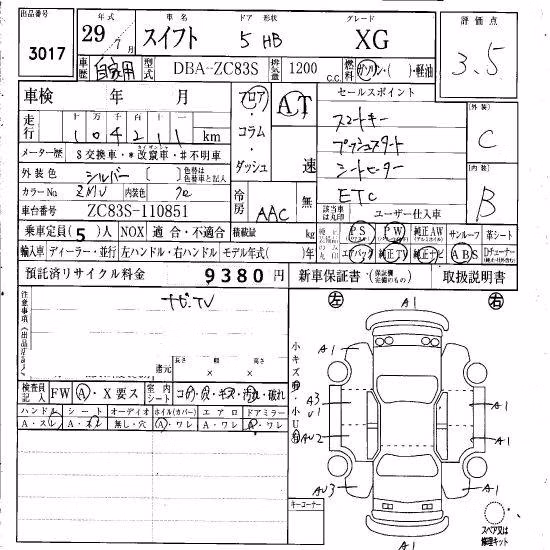 出品番号 3017
年式 29 年 / 7月
車名 スイフト
ドア 形状 5 HB
グレード XG
評価点 3.5
車歴 自家用
型式 DBA-ZC83S
排気量 1200 c.c.
燃料 ガソリン・( )・軽油
車検 年 月
フロア・コラム・ダッシュ
AT 速
セールスポイント
スマートキー
プッシュスタート
シートヒーター
ETC
外装 C
内装 B
走行 十万 千百十一
1 0 4 2 1 1 km
メーター歴 $交換車・*改竄車・#不明車
外装色 シルバー [ ] 色替は色替車名と記入
カラーNo ZMV 内装色 クロ [ ]
冷房 AAC 無
車台番号 ZC83S-110851
該当車は丸印 ユーザー仕入車
乗車定員(5)人 NOX 適合・不適合 積載量 kg
PS PW 純正AW サンルーフ 革シート
輸入車 ディーラー・並行 左ハンドル・右ハンドル モデル年式( )年
エアバッグ 純正TV 純正ナビ ABS Dチューナー
預託済リサイクル料金 9380円
新車保証書・(保証欄完備のもの) 取扱説明書
注意事項(出品店申告)
ナビ.TV
還元 長さ 幅 高さ
× ×
検査員記入 FW A・X要ス 室内シート コゲ・穴・キズ・汚れ・破れ
ハンドル シート オーディオ ホイル(カバー) エアロ ドアミラー
A・スレ A・スレ 無し・穴 A・ワレ A・ワレ A・ワレ
キーコーナー
小キズ 小U
左 右
A1
A1
A1
A3
U1
A1
AU2
AU3
A1
A1
スペア又は修理キット